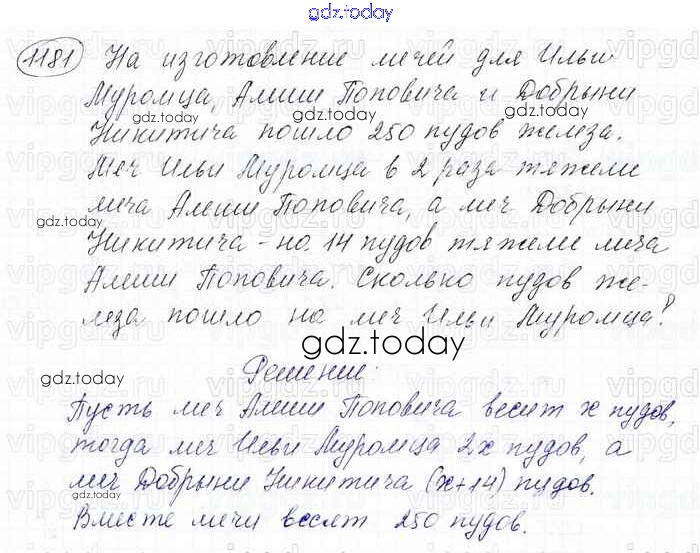 gdz.today
1181 На изготовление мечей для Ильи
Муромца, Алеши Поповича и Добрыни
gdz.today gdz.today
Никитича пошло 250 пудов железа.
Меч Ильи Муромца в 2 раза тяжели
gdz.today gdz.today
мича Алеши Поповича, а меч Добрыни
Никитича - на 14 пудов тяжели меча
Алеши Поповича. Сколько пудов же-
леза пошло на меч Ильи Муромца?
gdz.today
gdz.today
Решение:
gdz.today
Пусть меч Алеши Поповича весит x пудов,
тогда меч Ильи Муромца 2x пудов, а
gdz.today
меч Добрыни Никитича (x+14) пудов.
gdz.today
Вместе мечи весят 250 пудов.